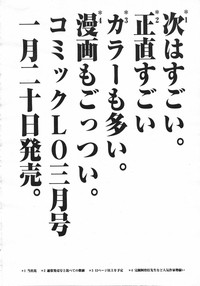 *1
次はすごい。
*2
正直すごい
*3
カラーも多い。
*4
漫画もごっつい。
コミックLO三月号
一月二十日発売。
*1 当社比